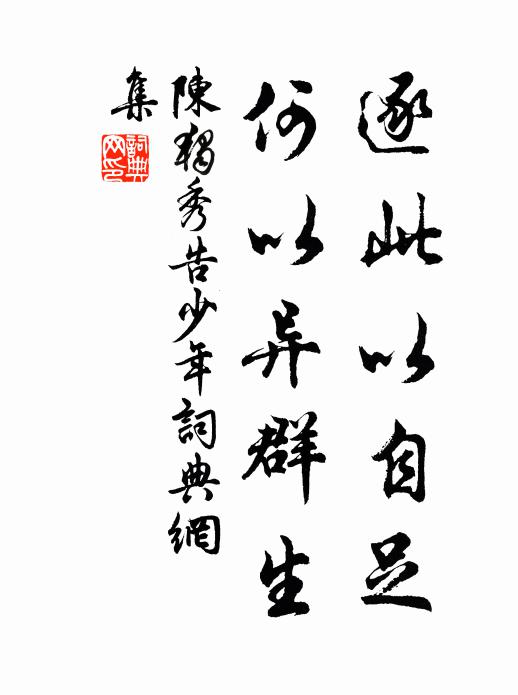 逐此以自足
何以异群生
陳獨秀告少年詞典網
集
詞典
网印